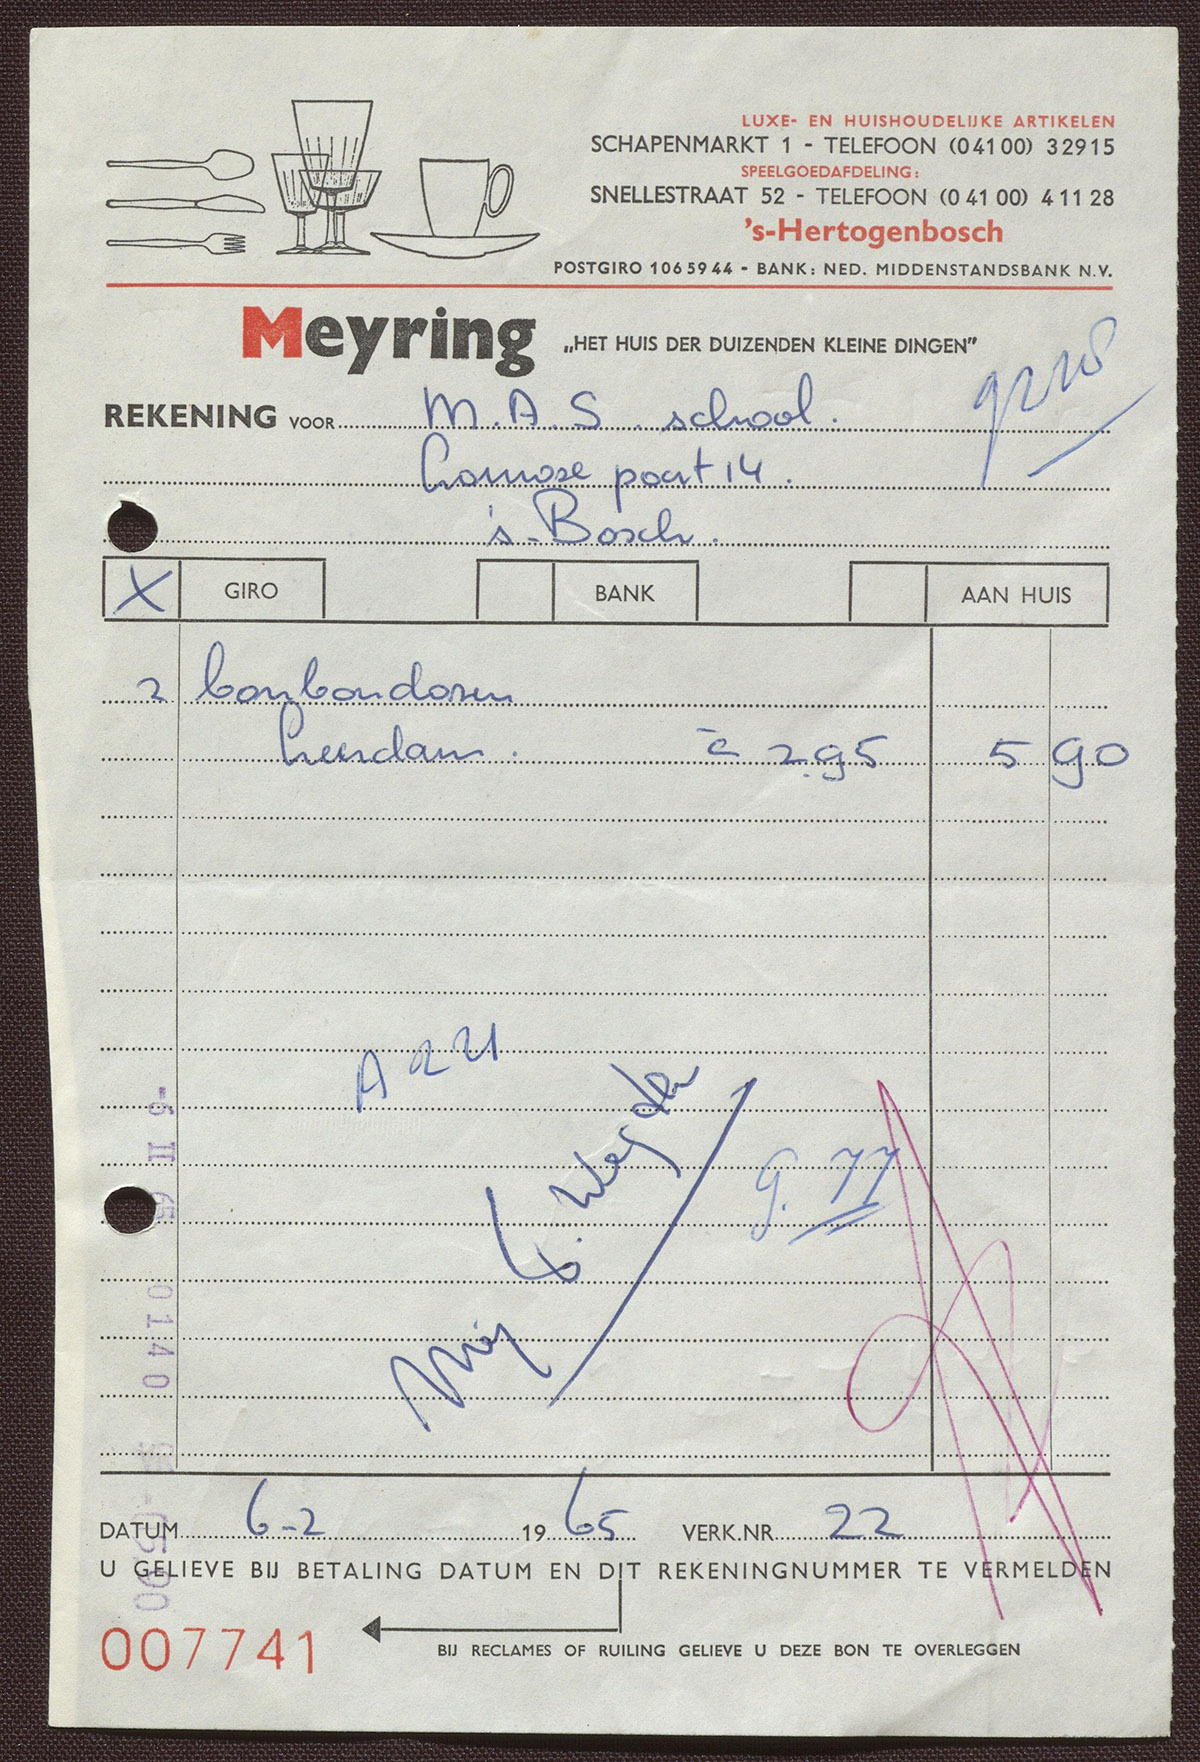 LUXE- EN HUISHOUDELIJKE ARTIKELEN
SCHAPENMARKT 1 - TELEFOON (04100) 32915
SPEELGOEDAFDELING:
SNELLESTRAAT 52 - TELEFOON (04100) 41128
's-Hertogenbosch
POSTGIRO 1065944 - BANK: NED. MIDDENSTANDSBANK N.V.
Meyring „HET HUIS DER DUIZENDEN KLEINE DINGEN”
REKENING VOOR M.A.S. school.
poort 14.
's-Bosch.
X GIRO BANK AAN HUIS
2 bonbondozen
Leerdam. à 2.95 5 90
A 221
G. 77
-6 II 65 0140 -05.90
DATUM 6-2 1965 VERK.NR 22
U GELIEVE BIJ BETALING DATUM EN DIT REKENINGNUMMER TE VERMELDEN
007741
BIJ RECLAMES OF RUILING GELIEVE U DEZE BON TE OVERLEGGEN